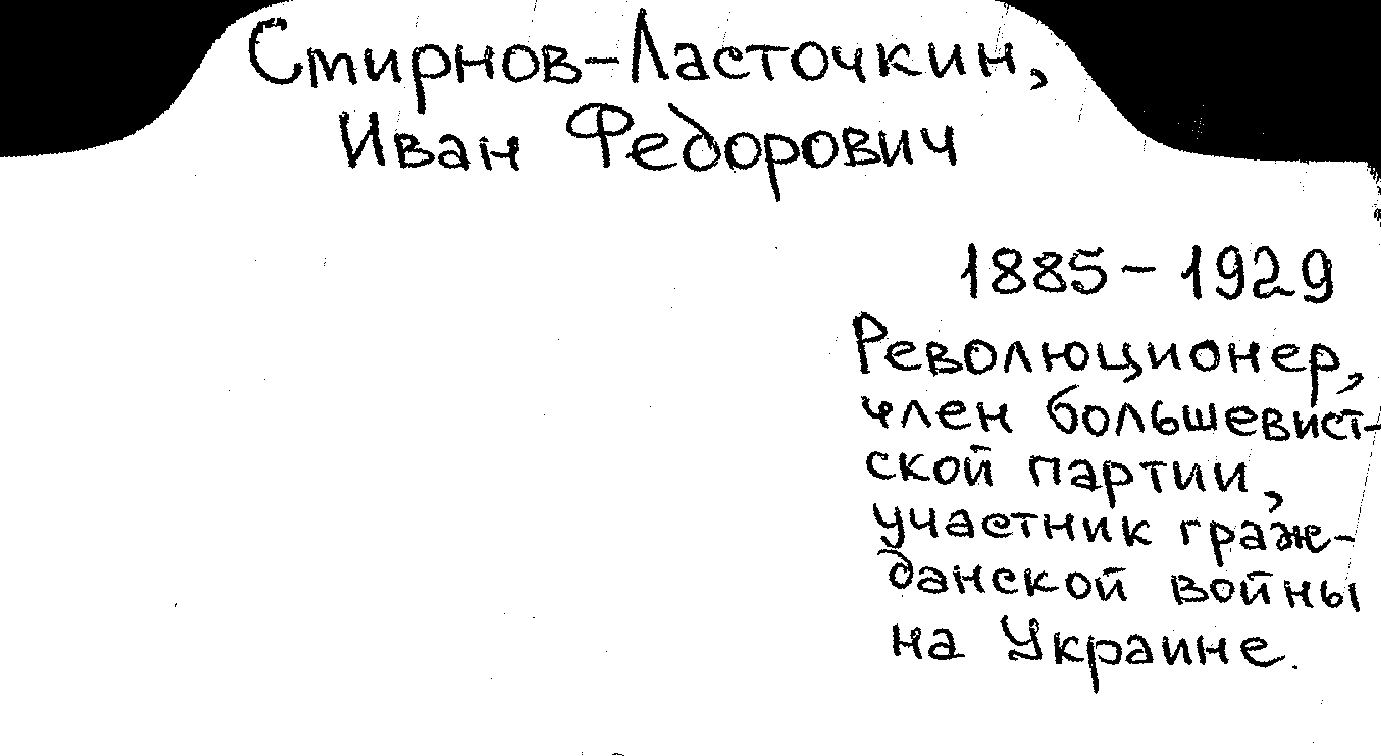 Смирнов-Ласточкин,
Иван Федорович
1885-1929
Революционер,
член большевист-
ской партии,
участник граж-
данской войны
на Украине.